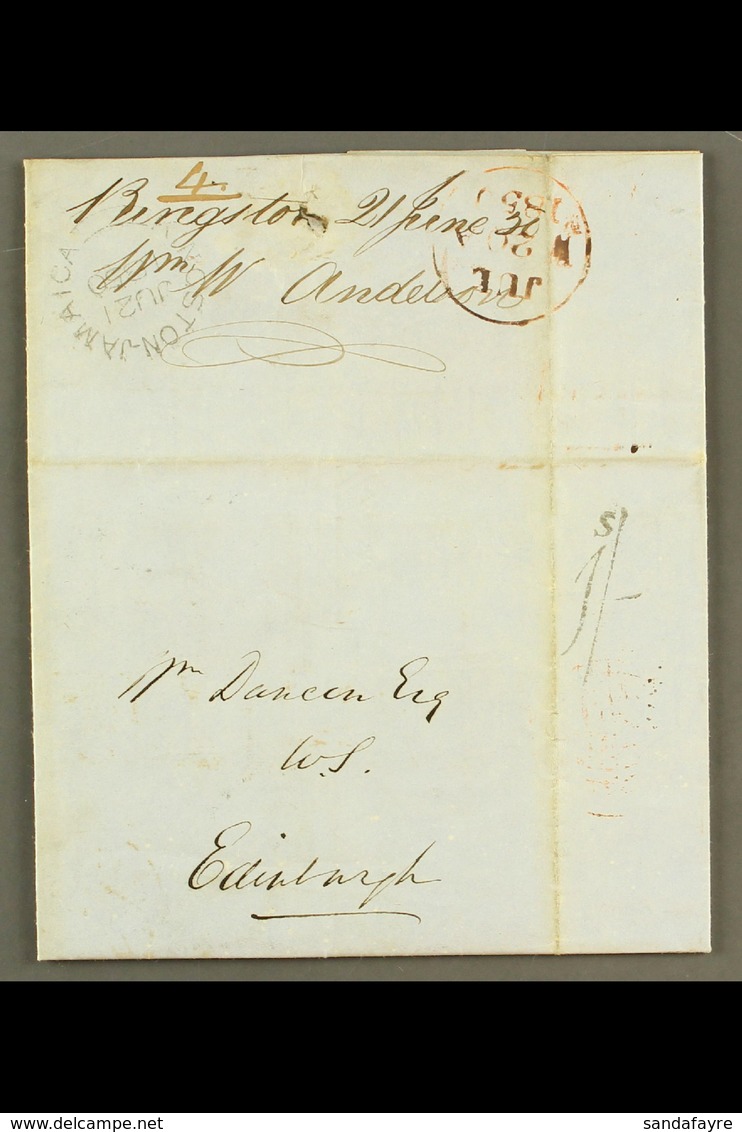 4.
Kingston 21 June 50
Wm W Anderson
KINGSTON-JAMAICA
JU 21
JUL
20
1850
s
1/-
Wm Duncan Esq
W.S.
Edinburgh
delcampe.net
sandafayre